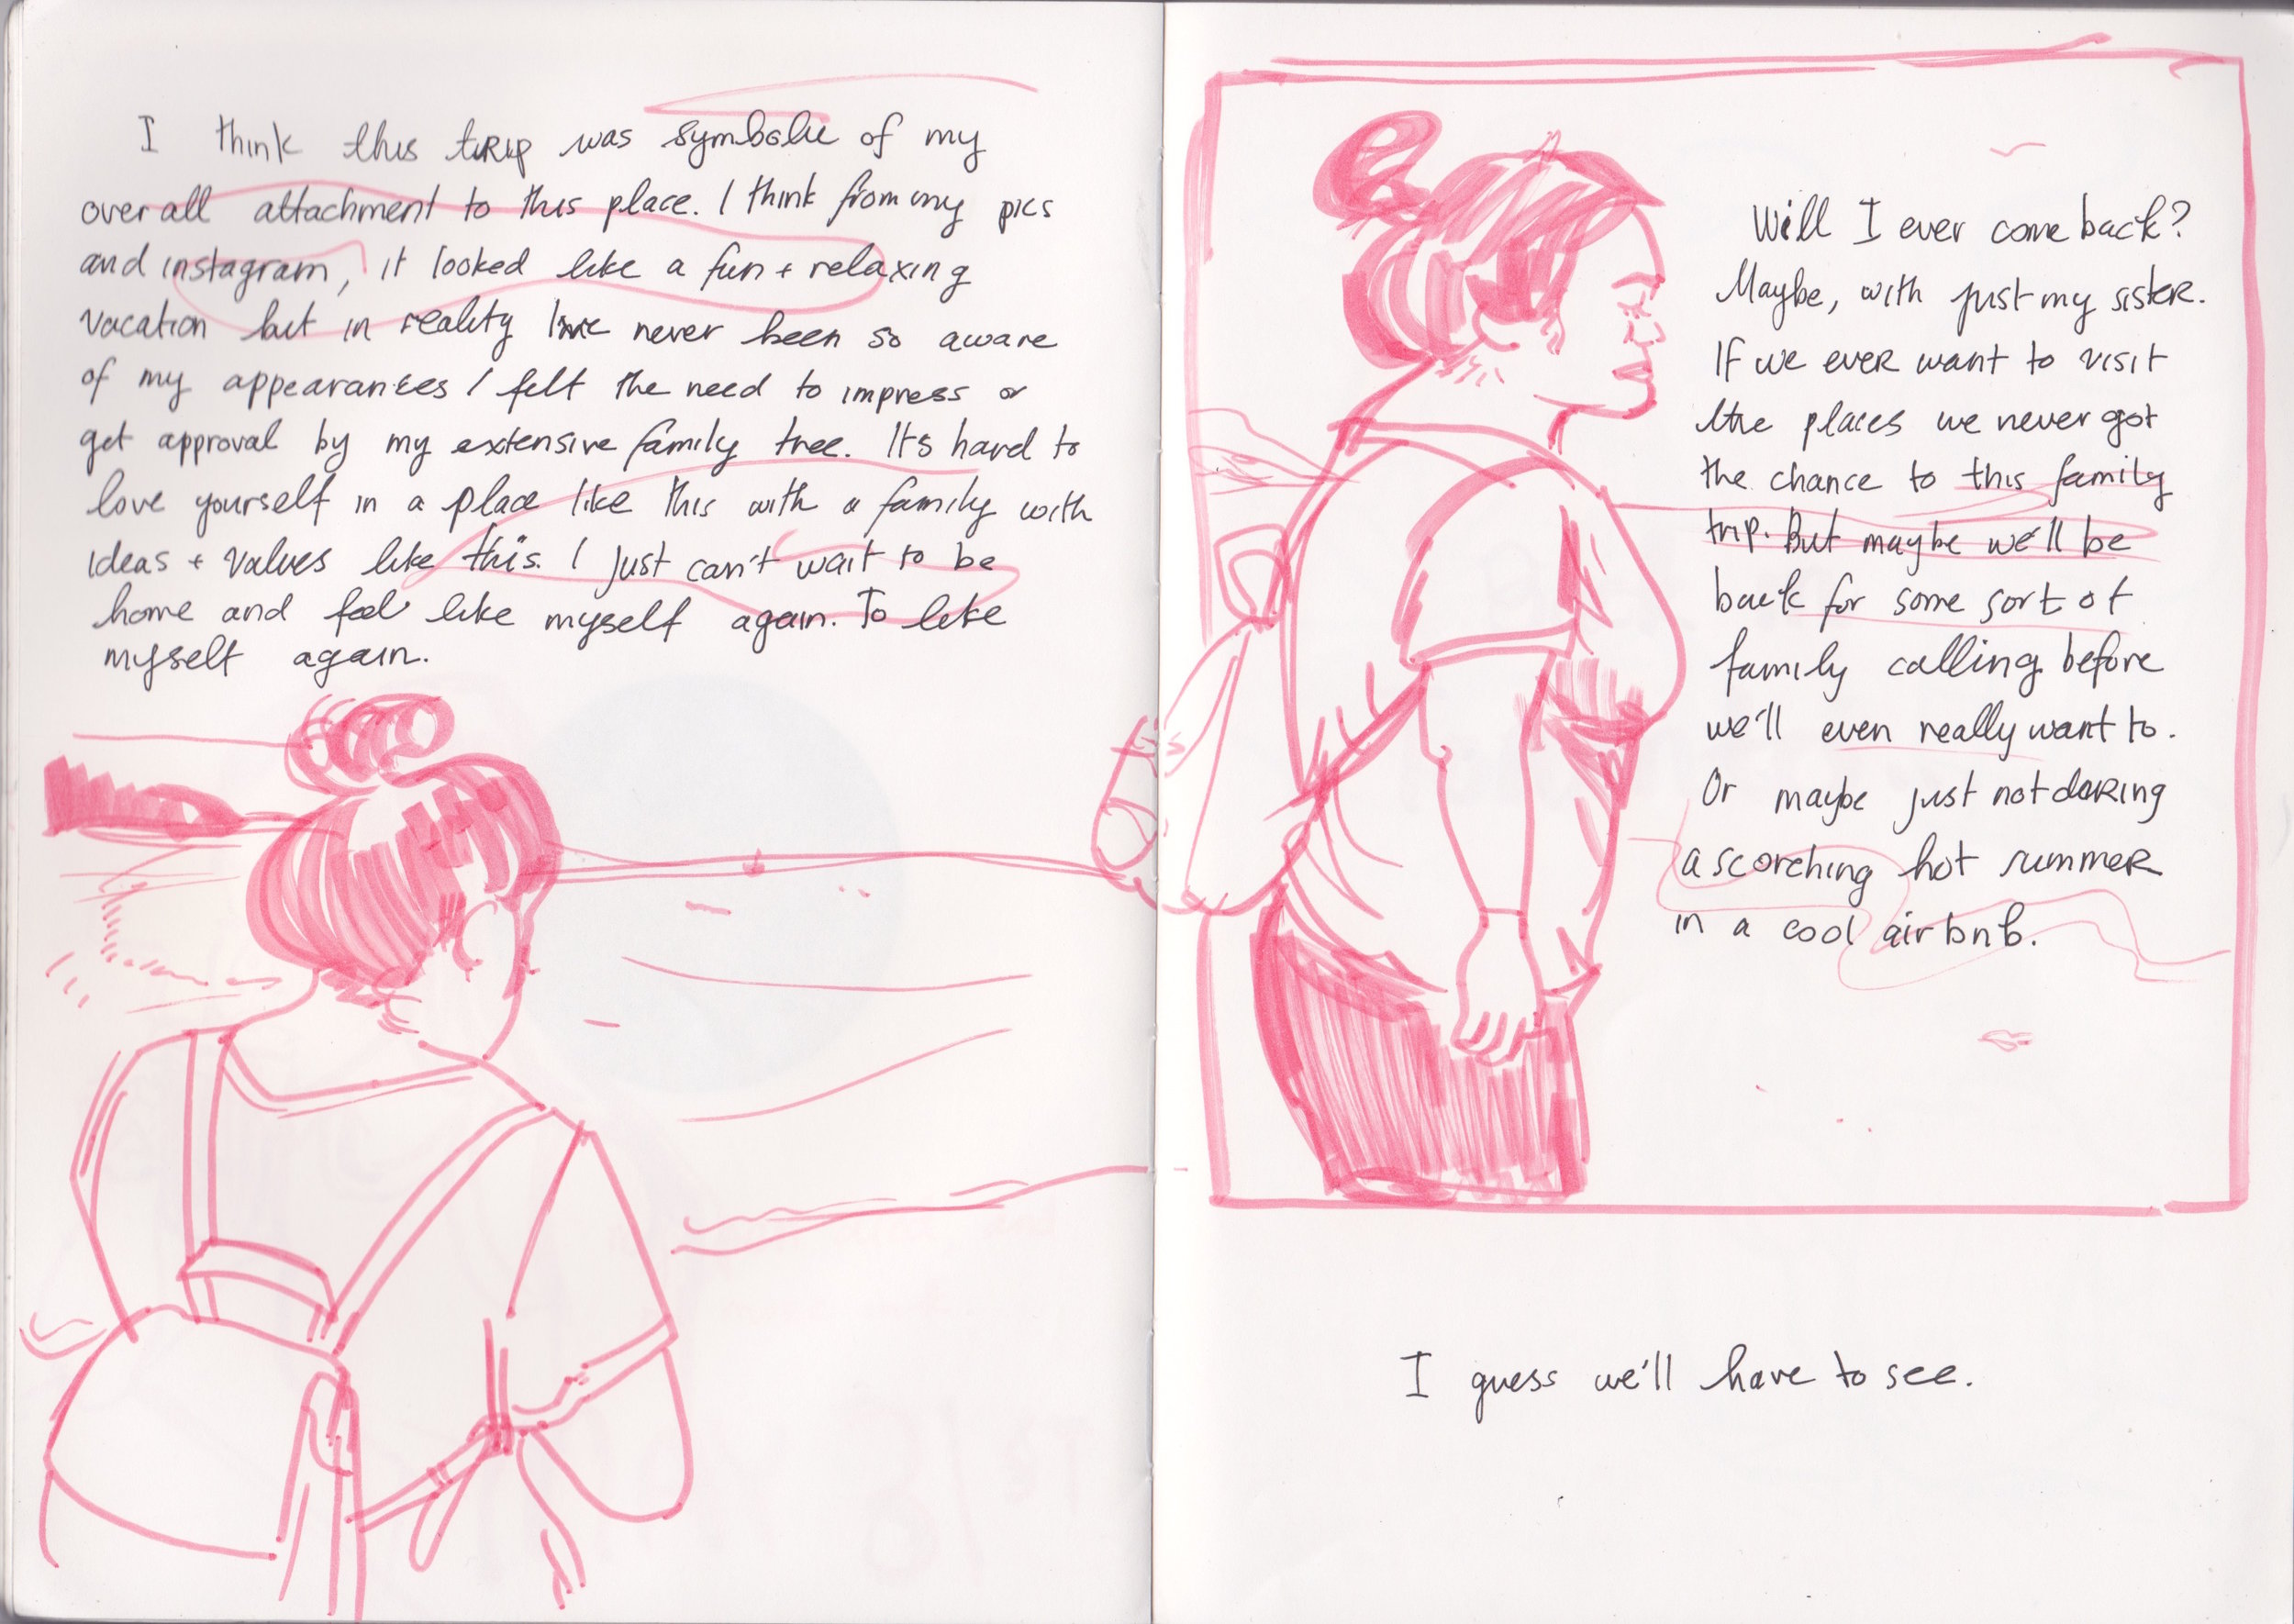 I think this tRip was symbolic of my
overall attachment to this place. I think from my pics
and instagram, it looked like a fun + relaxing
vacation but in reality I've never been so aware
of my appearances I felt the need to impress or
get approval by my extensive family tree. Its hard to
love yourself in a place like this with a family with
ideas + values like this. I just can't wait to be
home and feel like myself again. To like
myself again.
Will I ever come back?
Maybe, with just my sister.
If we ever want to visit
the places we never got
the chance to this family
trip. But maybe we'll be
back for some sort of
family calling before
we'll even really want to.
Or maybe just not during
a scorching hot summer
in a cool airbnb.
I guess we'll have to see.